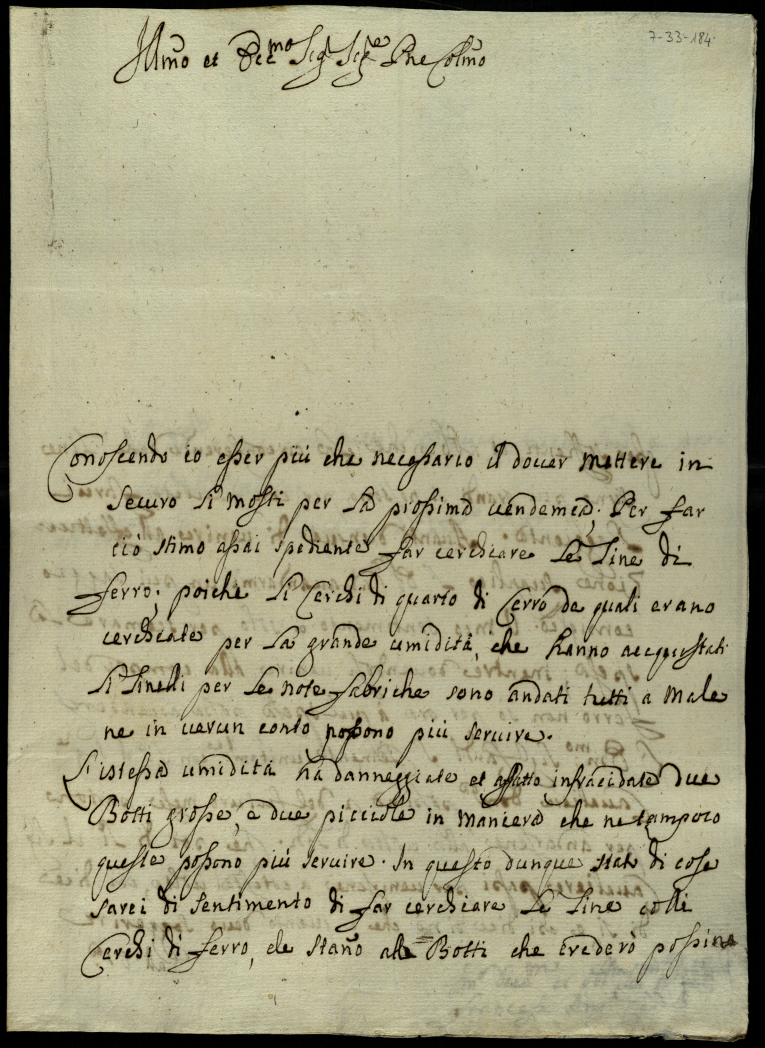 7-33-184
Illmo et Ecc.mo Sig.r Sig.re Pne Colmo
Conoscendo io esser più che necessario il dover mettere in
securo li mosti per la prossima vendemea; Per far
ciò stimo assai spediente far cerchiare le Tine di
ferro; poiche li Cerchi di quarto di Cerro de quali erano
cerchiate per la grande umidità, che hanno acquistati
li Tinelli per le note fabriche sono andati tutti a male
ne in verun conto possono più servire.
L'istessa umidità ha danneggiate et affatto infracidate due
Botti grosse, e due piccole in maniera che ne tampoco
queste possono più servire. In questo dunque stato di cose
sarei di sentimento di far cerchiare le Tine colli
Cerchi di ferro, e le stano alle Botti che crederò possino